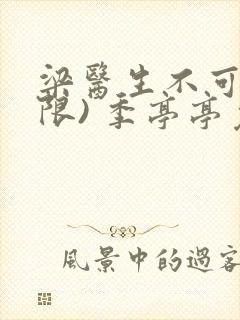 梁醫生不可
限) 季亭亭
風景中的過客